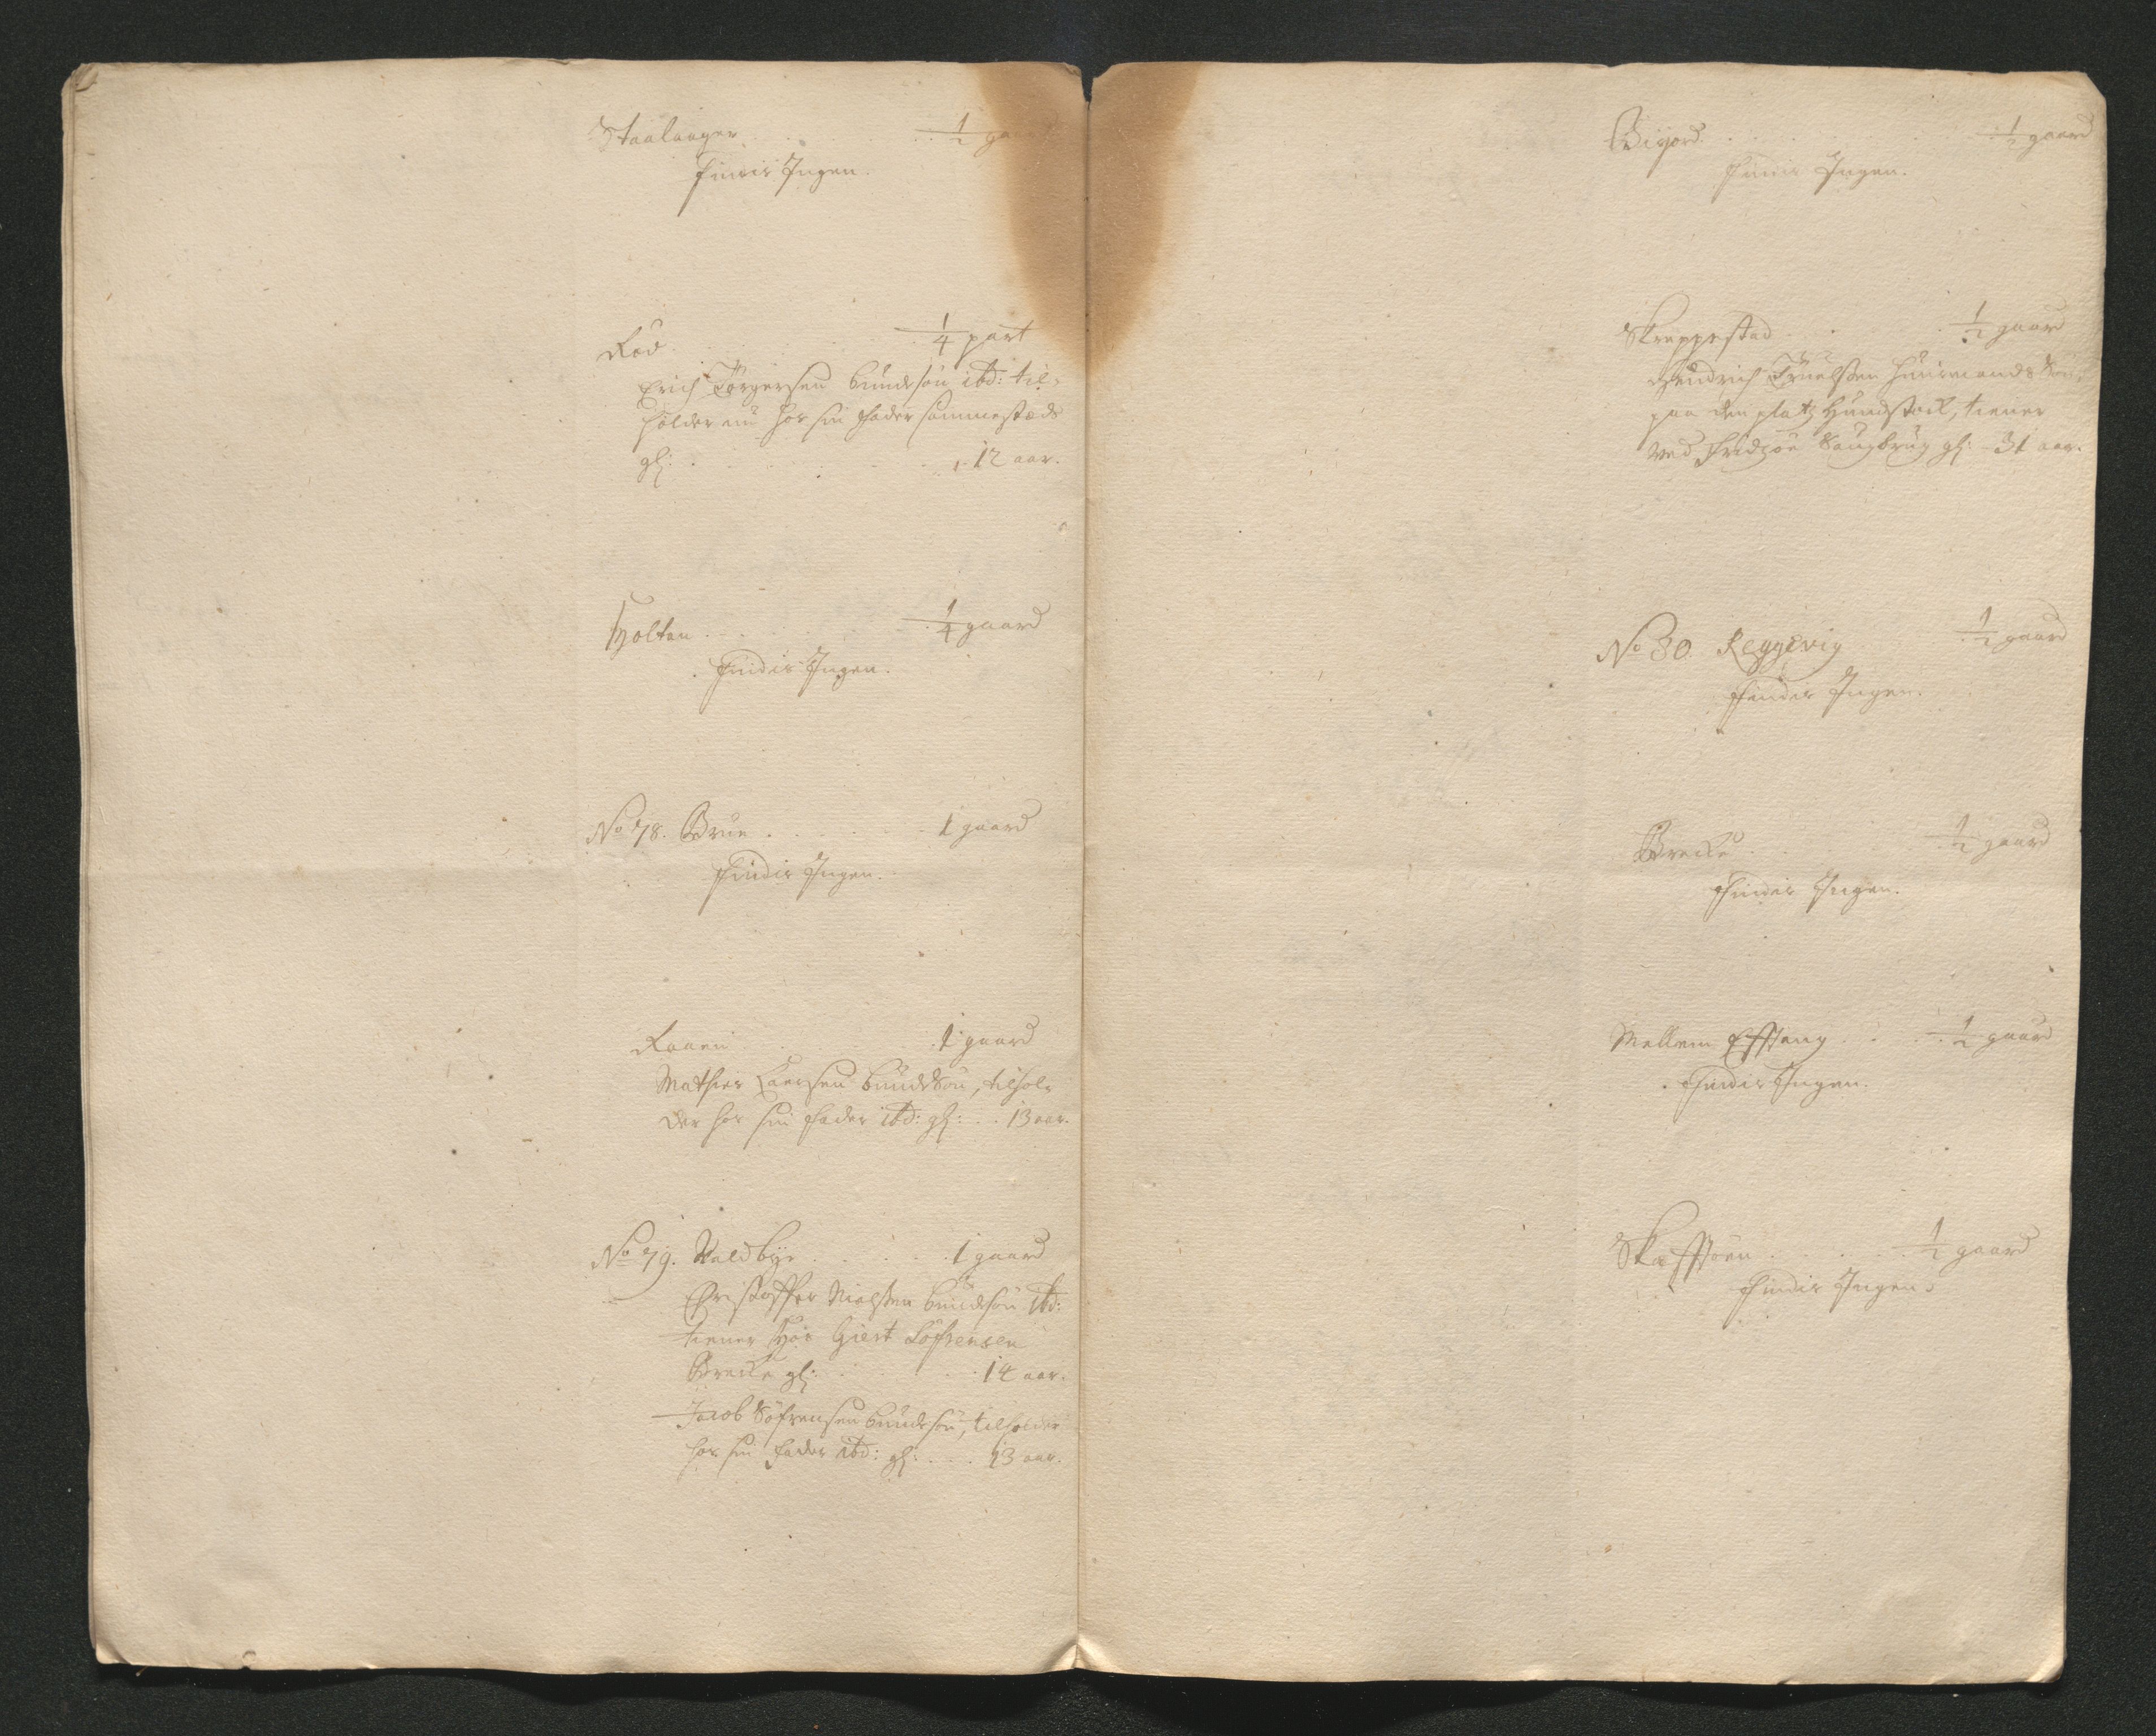 Staalaager . . . . 1/2 gaard
Findis Ingen.
Röd . . . . 1/4 part
Erich Törgersen bundesön ibd: til-
holder nu hos sin Fader sammestæds
gl: . . . . 12 aar.
Holten . . . . 1/4 gaard
Findis Ingen.
No 78. Brue . . . . 1 gaard
Findis Ingen.
Raaen . . . . 1 gaard
Mathies Larsen bundesön, tilhol-
der hos sin Fader ibd: gl: . . 13 aar.
No 79. Valdbye . . . . 1 gaard
Christopher Nielsen bundesön ibd:
tiener Hos Giert Söfrensen
Brecke gl: . . . . 14 aar.
Jacob Söfrensen bundesön, tilholder
hos sin Fader ibd: gl: . . . 13 aar.
Bijord . . . . 1/2 gaard
Findis Ingen.
Skreppestad . . . . 1/2 gaard
Hendrich Truelsen Huusmands Sön,
paa den platz Hundstock, tiener
ved Fridzöe Saugbrug gl: 31 aar.
No 80. Reggevig . . . 1/2 gaard
Findis Ingen.
Brecke . . . . 1/2 gaard
Findis Ingen.
Mellem Efftang . . . . 1/2 gaard
Findis Ingen.
Skaffioen . . . . 1/2 gaard
Findis Ingen.